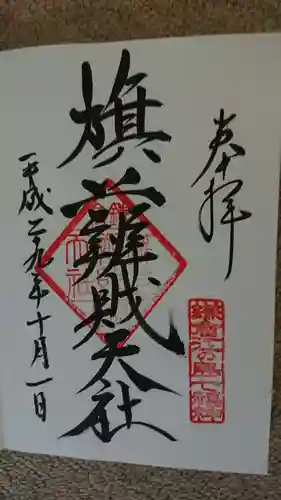 奉拝
鎌倉江の島七福神
旗上辨財天社
平成二九年十月一日